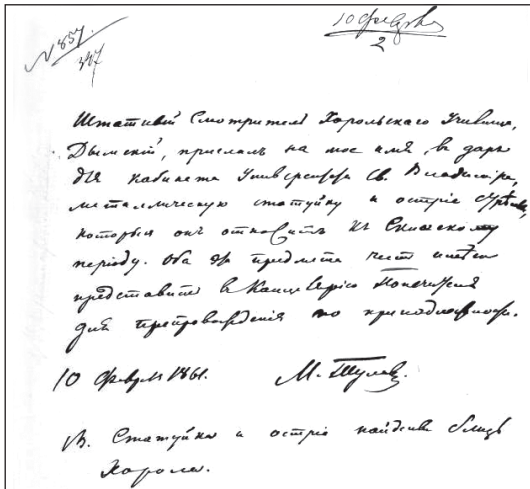 N 857
347
10 февр.
2
Штатный Смотритель Хорольскаго Училища,
Дымскій, прислалъ на мое имя, въ даръ
для кабинета Университета Св. Владиміра,
металлическую статуйку и остріе стрѣлы,
которыя онъ относитъ къ Скифскому
періоду. Оба эти предмета честь имѣю
представить въ Канцелярію Попечителя
для препровожденія по принадлежности.
10 Февраля 1861. М. Тулов.
NB. Статуйка и остріе найдены близь
Хорола.